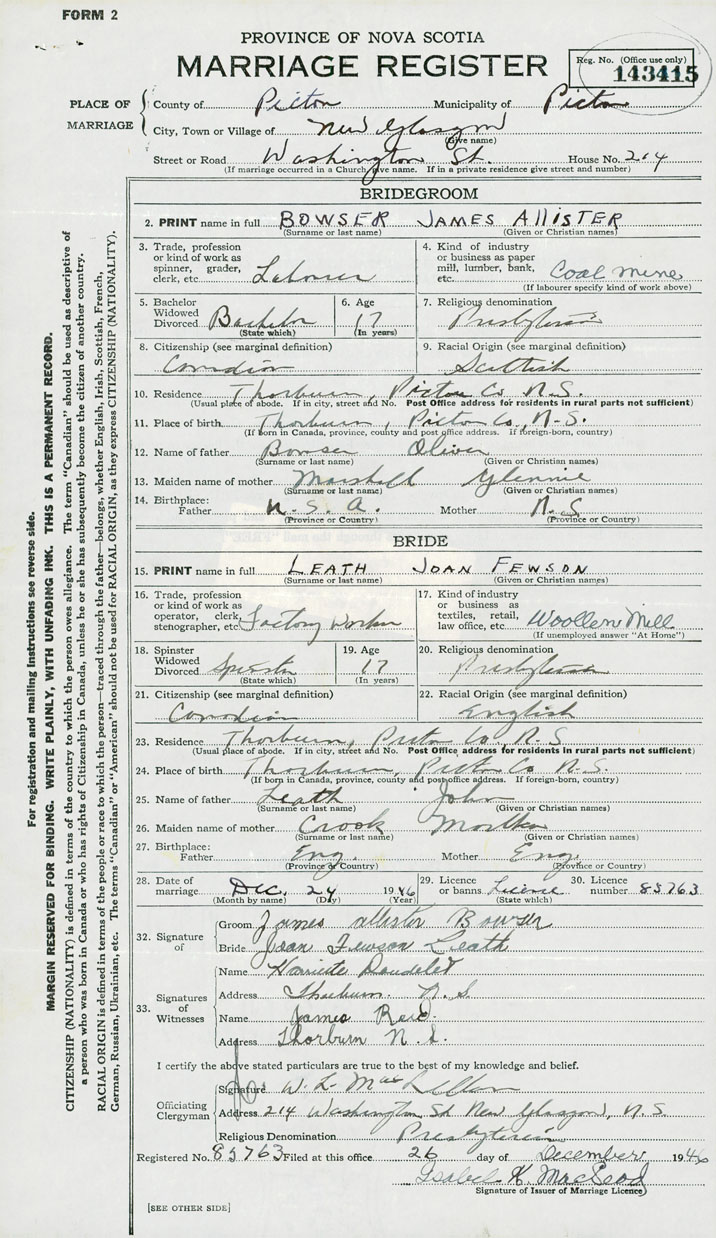 FORM 2
PROVINCE OF NOVA SCOTIA
MARRIAGE REGISTER
Reg. No. (Office use only)
143415
PLACE OF MARRIAGE
County of Pictou Municipality of Pictou
City, Town or Village of New Glasgow
(Give name)
Street or Road Washington St. House No. 214
(If marriage occurred in a Church give name. If in a private residence give street and number)
BRIDEGROOM
2. PRINT name in full BOWSER JAMES ALLISTER
(Surname or last name) (Given or Christian names)
3. Trade, profession or kind of work as spinner, grader, clerk, etc. Labourer
4. Kind of industry or business as paper mill, lumber, bank, etc. Coal mine
(If labourer specify kind of work above)
5. Bachelor Widowed Divorced Bachelor
(State which)
6. Age 17
(In years)
7. Religious denomination Presbyterian
8. Citizenship (see marginal definition) Canadian
9. Racial Origin (see marginal definition) Scottish
10. Residence Thorburn, Pictou Co. N.S.
(Usual place of abode. If in city, street and No. Post Office address for residents in rural parts not sufficient)
11. Place of birth Thorburn, Pictou Co., N.S.
(If born in Canada, province, county and post office address. If foreign-born, country)
12. Name of father Bowser Oliver
(Surname or last name) (Given or Christian names)
13. Maiden name of mother Marshall Glennie
(Surname or last name) (Given or Christian names)
14. Birthplace: Father U.S.A. Mother N.S
(Province or Country) (Province or Country)
BRIDE
15. PRINT name in full LEATH JOAN FEWSON
(Surname or last name) (Given or Christian names)
16. Trade, profession or kind of work as operator, clerk, stenographer, etc. Factory Worker
17. Kind of industry or business as textiles, retail, law office, etc. Woollen Mill
(If unemployed answer "At Home")
18. Spinster Widowed Divorced Spinster
(State which)
19. Age 17
(In years)
20. Religious denomination Presbyterian
21. Citizenship (see marginal definition) Canadian
22. Racial Origin (see marginal definition) English
23. Residence Thorburn, Pictou Co., N.S
(Usual place of abode. If in city, street and No. Post Office address for residents in rural parts not sufficient)
24. Place of birth Thorburn, Pictou Co N.S.
(If born in Canada, province, county and post office address. If foreign-born, country)
25. Name of father Leath John
(Surname or last name) (Given or Christian names)
26. Maiden name of mother Crook Martha
(Surname or last name) (Given or Christian names)
27. Birthplace: Father Eng. Mother Eng.
(Province or Country) (Province or Country)
28. Date of marriage Dec. 24 1946
(Month by name) (Day) (Year)
29. Licence or banns Licence
(State which)
30. Licence number 85763
32. Signature of
Groom James Allister Bowser
Bride Joan Fewson Leath
33. Signatures of Witnesses
Name Harriette
Address Thorburn N.S.
Name James Reid
Address Thorburn N.S.
I certify the above stated particulars are true to the best of my knowledge and belief.
Officiating Clergyman
Signature W. L. MacLellan
Address 214 Washington St New Glasgow, N.S.
Religious Denomination Presbyterian
Registered No. 85763 Filed at this office 26 day of December 1946
Isabel K. MacLeod
Signature of Issuer of Marriage Licence
[SEE OTHER SIDE]
For registration and mailing instructions see reverse side.
MARGIN RESERVED FOR BINDING. WRITE PLAINLY, WITH UNFADING INK. THIS IS A PERMANENT RECORD.
CITIZENSHIP (NATIONALITY) is defined in terms of the country to which the person owes allegiance. The term "Canadian" should be used as descriptive of
a person who was born in Canada or who has rights of Citizenship in Canada, unless he or she has subsequently become the citizen of another country.
RACIAL ORIGIN is defined in terms of the people or race to which the person—traced through the father—belongs, whether English, Irish, Scottish, French,
German, Russian, Ukrainian, etc. The terms "Canadian" or "American" should not be used for RACIAL ORIGIN, as they express CITIZENSHIP (NATIONALITY).